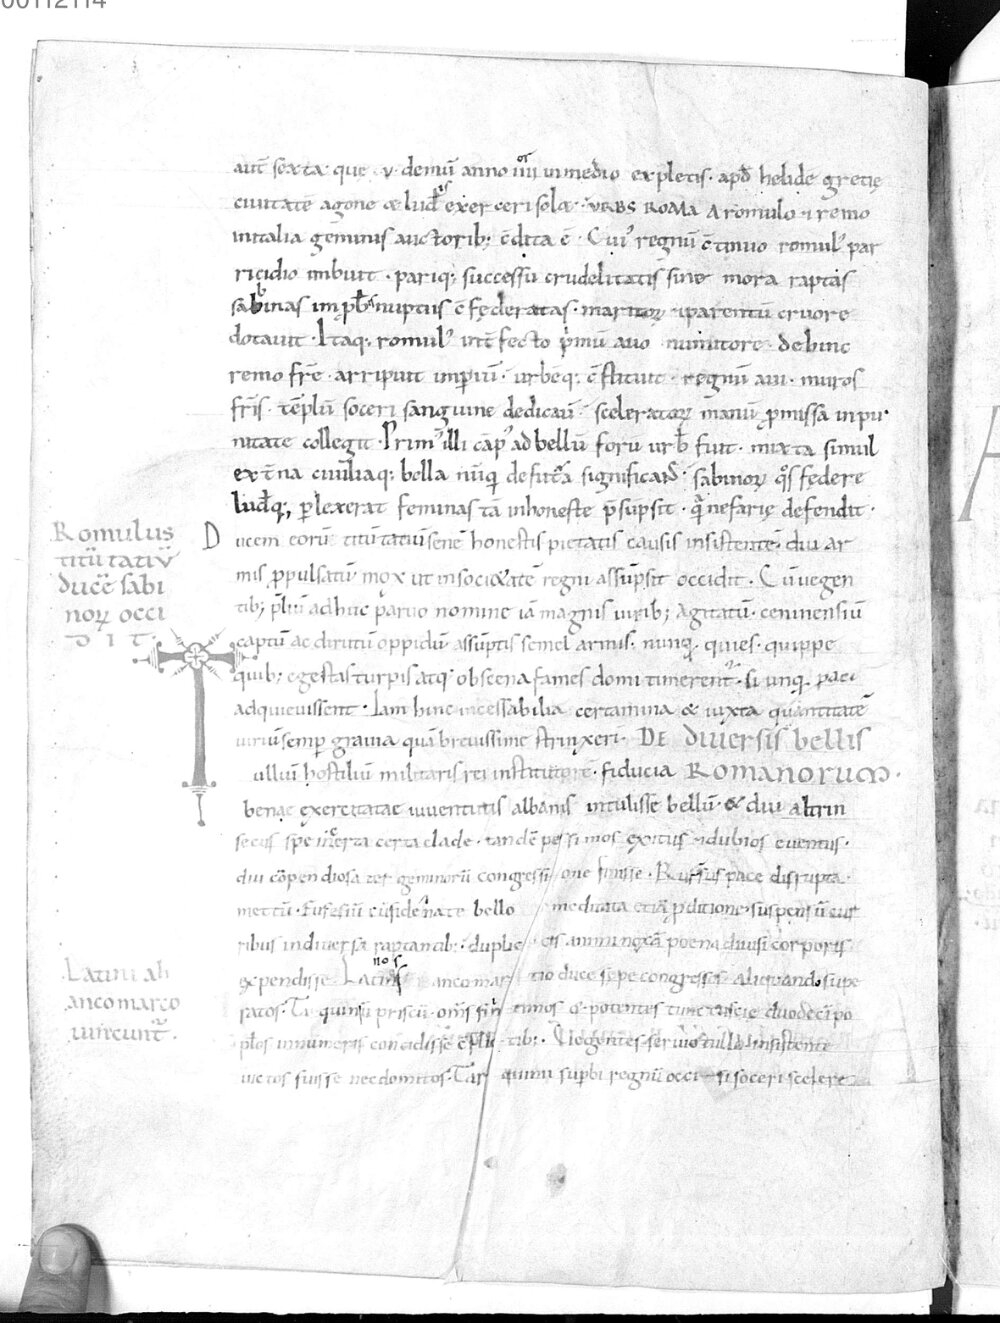 00112114
aut̄ sexta que v· demū anno iiii in medio expletis· apđ helide gretie
ciuitatē agone & luđ exerceri solæ· VRBS ROMA A romulo · i remo
initalia geminis auctorib; ēdita ē· Cui' regnū c̄tinuo romul' par
ricidio imbuit · pariq; successu crudelitatis sine mora raptas
sabbinas imp̄bis nuptiis c̄federatas· maritoꝝ · iparentū cruore
dotauit· Itaq; romul' int̄fecto p̄mū auo numitore· dehinc
remo fr̄e · arripuit imꝑiū· urbēq; c̄stituit· regnū aui· muros
fr̄is· tēplū soceri sanguine dedicauit· sceleratoꝝ manū ꝓmissa inpu·
nitate collegit· Prim' illi cāp' ad bellū foru urƀ fuit· mixta simul
ext̄na ciuiliaq; bella nūq̄ defitura significans· sabinoꝝ q̊s federe
ludq; ꝑlexerat feminas tā inhoneste p̄sūpsit · q̄ nefarie defendit·
Ducem eorū titū tatiū senē honestis pietatis causis insistentē· diu ar
mis ꝓpulsatū mox ut in societatē regni assūpsit occidit· Cū uegen
tib; p̄liū adhuc paruo nomine iā magnis uirib; agitatū· ceninensiū
captū ac dirutū oppidū assūptis semel armis· nunq̄· quies· quippe
quib; egestas turpis atq; obscena fames domi timerent̄· si unq̄· pace
adquieuissent· Iam hinc incessabilia certamina & iuxta quantitatē
uiriū semꝑ grauia quā breuissime strinxeri· DE diuersis bellis
ullium hostiliū militaris rei institutorē· fiducia ROMANORUM·
bene exercitatae iuuentutis albanis intulisse bellū· & diu altrin
secus spe incerta certa clade· tandē pessimos exitus · idubios euentus·
diu cōpendiosa ter geminorū congressione finisse· Rursus pace disrupta·
mettū· fufetiū cū fidenate bello meditata etiā ꝑditione· suspensū eius
ribus in diuersa raptantib; · duplicis animi noxā poena diuisi corporis
expendisse· Latinos anco martio duce sepe congressos· aliquando supe
ratos· Tarquinii priscū· om̄s finitimos & potentes tunc tuscie duodeci po
płos innumeris concidisse c̄flictib;· Ueogentes seruio tullio insistente
uictos fuisse nec domitos· Tarquinii suꝑbi regnū occisi soceri scelere
Romulus
titū tatiū
ducē sabi
noꝝ occi
D I T·
Latini ab
anco marco
uincunt̄·